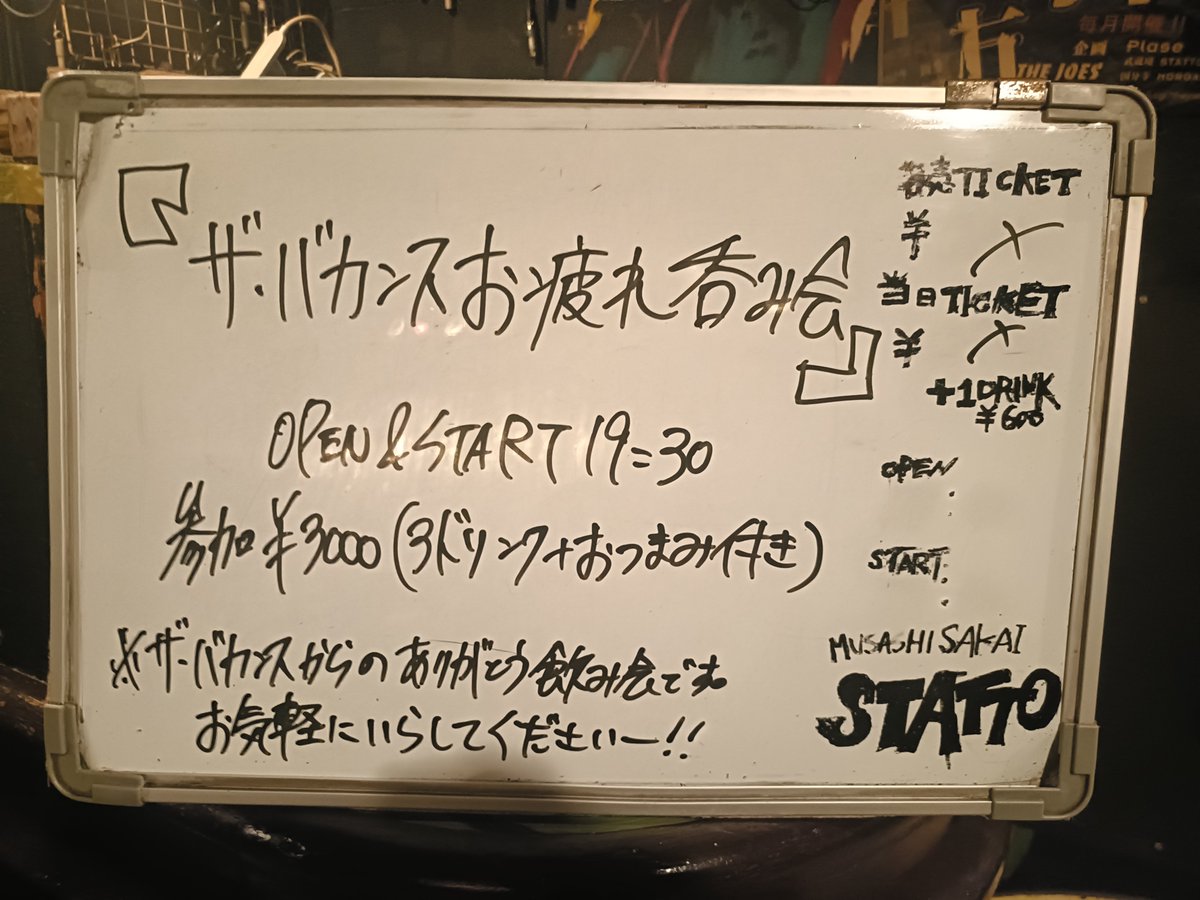 『ザ・バカンスお疲れ呑み会』
OPEN & START 19:30
参加¥3000(3ドリンク+おつまみ付き)
※ザ・バカンスからのありがとう飲み会です。
お気軽にいらしてくださいー!!
TICKET
¥ ×
当日TICKET
¥ ×
+1DRINK
¥600
OPEN
:
START
:
MUSASHISAKAI
STATTO
毎月開催!!
企画 Plase
THE JOES